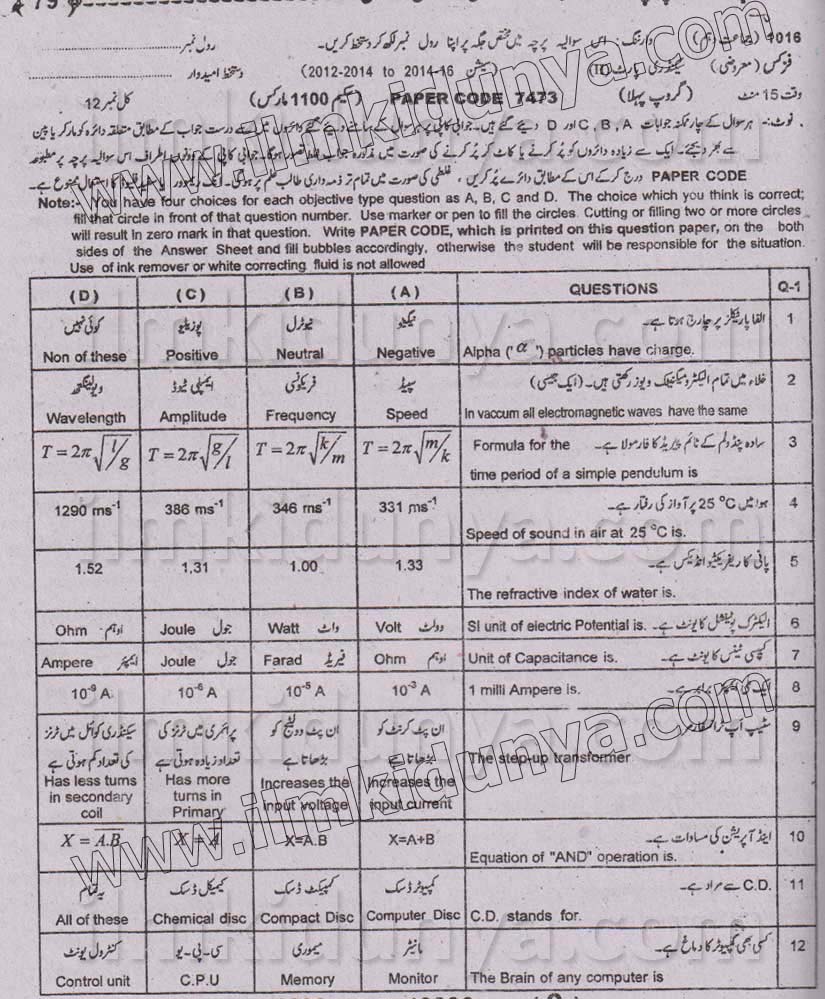 2016
(جماعت دہم)
وارننگ:۔ اس سوالیہ پرچہ میں مختص جگہ پر اپنا رول نمبر لکھ کر دستخط کریں۔
رول نمبر
فزکس (معروضی)
(سیشن 2012-2014 to 2014-16)
دستخط امیدوار
وقت 15 منٹ (گروپ پہلا) PAPER CODE 7473 (سکیم 1100 مارکس) کل نمبر 12
نوٹ:۔ ہر سوال کے چار ممکنہ جوابات A ، B ، C اور D دیئے گئے ہیں۔ جوابی کاپی پر ہر سوال کے سامنے دیئے گئے دائروں میں سے درست جواب کے مطابق متعلقہ دائرہ کو مارکر یا پین
سے بھر دیجئے۔ ایک سے زیادہ دائروں کو پُر کرنے یا کاٹ کر پُر کرنے کی صورت میں مذکورہ جواب غلط تصور ہوگا۔ جوابی کاپی کے دونوں اطراف اس سوالیہ پرچہ پر مطبوعہ
PAPER CODE درج کر کے اس کے مطابق دائرے پُر کریں، غلطی کی صورت میں تمام تر ذمہ داری طالب علم پر ہوگی۔ کا استعمال ممنوع ہے۔
Note:- You have four choices for each objective type question as A, B, C and D. The choice which you think is correct;
fill that circle in front of that question number. Use marker or pen to fill the circles. Cutting or filling two or more circles
will result in zero mark in that question. Write PAPER CODE, which is printed on this question paper, on the both
sides of the Answer Sheet and fill bubbles accordingly, otherwise the student will be responsible for the situation.
Use of ink remover or white correcting fluid is not allowed
(D) (C) (B) (A) QUESTIONS Q-1
کوئی نہیں پوزیٹو نیوٹرل نیگیٹو الفا پارٹیکلز پر چارج ہوتا ہے۔ 1
Non of these Positive Neutral Negative Alpha ('α') particles have charge.
ویولینگتھ ایمپلی ٹیوڈ فریکونسی سپیڈ خلاء میں تمام الیکٹرومیگنیٹک ویوز رکھتی ہیں۔ (ایک جیسی) 2
Wavelength Amplitude Frequency Speed In vaccum all electromagnetic waves have the same
T = 2π√l/g T = 2π√g/l T = 2π√k/m T = 2π√m/k Formula for the سادہ پنڈولم کے ٹائم پیریڈ کا فارمولا ہے۔ 3
time period of a simple pendulum is
ہوا میں 25 °C پر آواز کی رفتار ہے۔ 4
1290 ms-1 386 ms-1 346 ms-1 331 ms-1 Speed of sound in air at 25 °C is.
پانی کا ریفریکٹو انڈیکس ہے۔ 5
1.52 1.31 1.00 1.33 The refractive index of water is.
Ohm اوہم Joule جول Watt واٹ Volt وولٹ SI unit of electric Potential is. الیکٹرک پوٹینشل کا یونٹ ہے۔ 6
Ampere ایمپئر Joule جول Farad فیریڈ Ohm اوہم Unit of Capacitance is. کپیسی ٹینس کا یونٹ ہے۔ 7
10-9 A 10-6 A 10-5 A 10-3 A 1 milli Ampere is. 8
سیکنڈری کوائل میں ٹرنز پرائمری میں ٹرنز کی ان پٹ وولٹیج کو ان پٹ کرنٹ کو سٹیپ اپ ٹرانسفارمر 9
کی تعداد کم ہوتی ہے تعداد زیادہ ہوتی ہے بڑھاتا ہے بڑھاتا ہے
Has less turns Has more Increases the Increases the The step-up transformer
in secondary turns in input voltage input current
coil Primary
X = A̅.̅B̅ X = A̅ X=A.B X=A+B اینڈ آپریشن کی مساوات ہے۔ 10
Equation of "AND" operation is.
یہ تمام کیمیکل ڈسک کمپیکٹ ڈسک کمپیوٹر ڈسک C.D. سے مراد ہے۔ 11
All of these Chemical disc Compact Disc Computer Disc C.D. stands for.
کنٹرول یونٹ سی۔پی۔یو میموری مانیٹر کسی بھی کمپیوٹر کا دماغ ہے۔ 12
Control unit C.P.U Memory Monitor The Brain of any computer is
www.ilmkidunya.com
www.ilmkidunya.com
ilmkidunya.com
ilmkidunya.com
ilmkidunya.com
ilmkidunya.com